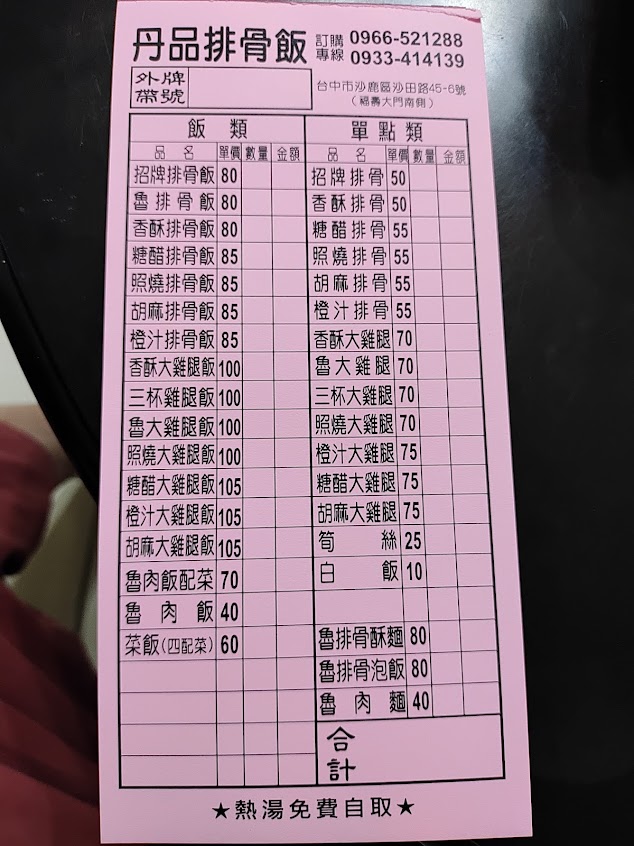 丹品排骨飯 訂購專線 0966-521288
0933-414139
外牌帶號
台中市沙鹿區沙田路45-6號
（福壽大門南側）
飯類
品名 單價 數量 金額
招牌排骨飯 80
魯排骨飯 80
香酥排骨飯 80
糖醋排骨飯 85
照燒排骨飯 85
胡麻排骨飯 85
橙汁排骨飯 85
香酥大雞腿飯 100
三杯雞腿飯 100
魯大雞腿飯 100
照燒大雞腿飯 100
糖醋大雞腿飯 105
橙汁大雞腿飯 105
胡麻大雞腿飯 105
魯肉飯配菜 70
魯肉飯 40
菜飯(四配菜) 60
單點類
品名 單價 數量 金額
招牌排骨 50
香酥排骨 50
糖醋排骨 55
照燒排骨 55
胡麻排骨 55
橙汁排骨 55
香酥大雞腿 70
魯大雞腿 70
三杯大雞腿 70
照燒大雞腿 70
橙汁大雞腿 75
糖醋大雞腿 75
胡麻大雞腿 75
筍絲 25
白飯 10
魯排骨酥麵 80
魯排骨泡飯 80
魯肉麵 40
合計
★熱湯免費自取★